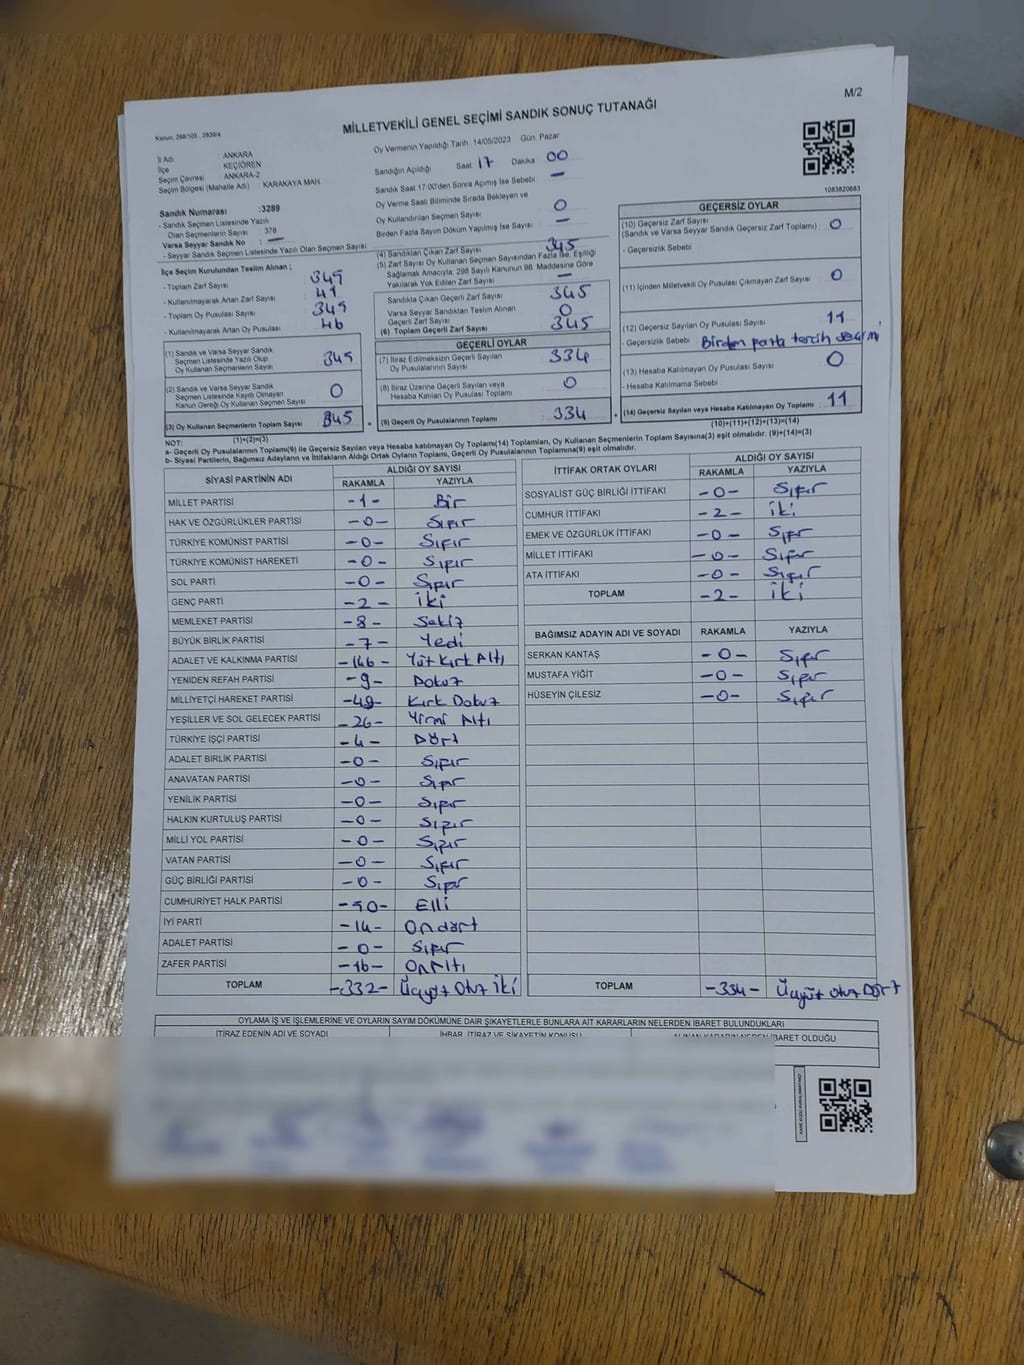 M/2
Kanun: 298/105 , 2839/4
MİLLETVEKİLİ GENEL SEÇİMİ SANDIK SONUÇ TUTANAĞI
İl Adı : ANKARA
İlçe : KEÇİÖREN
Seçim Çevresi : ANKARA-2
Seçim Bölgesi (Mahalle Adı) : KARAKAYA MAH
Oy Vermenin Yapıldığı Tarih : 14/05/2023 Gün: Pazar
Sandığın Açıldığı Saat 17 Dakika 00
Sandık Saat 17 00'den Sonra Açımış İse Sebebi —
Oy Verme Saati Bitiminde Sırada Bekleyen ve
Oy Kullandırılan Seçmen Sayısı 0
Birden Fazla Sayım Döküm Yapılmış İse Sayısı —
1083820683
Sandık Numarası :3289
- Sandık Seçmen Listesinde Yazılı
Olan Seçmenlerin Sayısı : 378
Varsa Seyyar Sandık No : —
- Seyyar Sandık Seçmen Listesinde Yazılı Olan Seçmen Sayısı:
İlçe Seçim Kurulundan Teslim Alınan ;
- Toplam Zarf Sayısı
- Kullanılmayarak Artan Zarf Sayısı
- Toplam Oy Pusulası Sayısı
- Kullanılmayarak Artan Oy Pusulası 46
(1) Sandık ve Varsa Seyyar Sandık
Seçmen Listesinde Yazılı Olup
Oy Kullanan Seçmenlerin Sayısı 345
(2) Sandık ve Varsa Seyyar Sandık
Seçmen Listesinde Kayıtlı Olmayan
Kanun Gereği Oy Kullanan Seçmen Sayısı 0
(3) Oy Kullanan Seçmenlerin Toplam Sayısı 345
(1)+(2)=(3)
(4) Sandıktan Çıkan Zarf Sayısı 345
(5) Zarf Sayısı Oy Kullanan Seçmen Sayısından Fazla İse, Eşitliği
Sağlamak Amacıyla, 298 Sayılı Kanunun 98. Maddesine Göre
Yakılarak Yok Edilen Zarf Sayısı —
Sandıkta Çıkan Geçerli Zarf Sayısı 345
Varsa Seyyar Sandıktan Teslim Alınan
Geçerli Zarf Sayısı 0
(6) Toplam Geçerli Zarf Sayısı 345
GEÇERLİ OYLAR
(7) İtiraz Edilmeksizin Geçerli Sayılan
Oy Pusulalarının Sayısı 334
(8) İtiraz Üzerine Geçerli Sayılan veya
Hesaba Katılan Oy Pusulası Toplamı 0
(9) Geçerli Oy Pusulalarının Toplamı 334
GEÇERSİZ OYLAR
(10) Geçersiz Zarf Sayısı
(Sandık ve Varsa Seyyar Sandık Geçersiz Zarf Toplamı) 0
- Geçersizlik Sebebi
(11) İçinden Milletvekili Oy Pusulası Çıkmayan Zarf Sayısı 0
(12) Geçersiz Sayılan Oy Pusulası Sayısı 11
- Geçersizlik Sebebi Birden fazla tercih seçimi
(13) Hesaba Katılmayan Oy Pusulası Sayısı 0
- Hesaba Katılmama Sebebi
(14) Geçersiz Sayılan veya Hesaba Katılmayan Oy Toplamı 11
(10)+(11)+(12)+(13)=(14)
NOT:
a- Geçerli Oy Pusulalarının Toplamı(9) ile Geçersiz Sayılan veya Hesaba katılmayan Oy Toplamı(14) Toplamları, Oy Kullanan Seçmenlerin Toplam Sayısına(3) eşit olmalıdır. (9)+(14)=(3)
b- Siyasi Partilerin, Bağımsız Adayların ve İttifakların Aldığı Ortak Oyların Toplamı, Geçerli Oy Pusulalarının Toplamına(9) eşit olmalıdır.
SİYASİ PARTİNİN ADI ALDIĞI OY SAYISI
RAKAMLA YAZIYLA
MİLLET PARTİSİ -1- Bir
HAK VE ÖZGÜRLÜKLER PARTİSİ -0- Sıfır
TÜRKİYE KOMÜNİST PARTİSİ -0- Sıfır
TÜRKİYE KOMÜNİST HAREKETİ -0- Sıfır
SOL PARTİ -0- Sıfır
GENÇ PARTİ -2- İki
MEMLEKET PARTİSİ -8- Sekiz
BÜYÜK BİRLİK PARTİSİ -7- Yedi
ADALET VE KALKINMA PARTİSİ -146- Yüz Kırk Altı
YENİDEN REFAH PARTİSİ -9- Dokuz
MİLLİYETÇİ HAREKET PARTİSİ -49- Kırk Dokuz
YEŞİLLER VE SOL GELECEK PARTİSİ -26- Yirmi Altı
TÜRKİYE İŞÇİ PARTİSİ -4- Dört
ADALET BİRLİK PARTİSİ -0- Sıfır
ANAVATAN PARTİSİ -0- Sıfır
YENİLİK PARTİSİ -0- Sıfır
HALKIN KURTULUŞ PARTİSİ -0- Sıfır
MİLLİ YOL PARTİSİ -0- Sıfır
VATAN PARTİSİ -0- Sıfır
GÜÇ BİRLİĞİ PARTİSİ -0- Sıfır
CUMHURİYET HALK PARTİSİ -50- Elli
İYİ PARTİ -14- Ondört
ADALET PARTİSİ -0- Sıfır
ZAFER PARTİSİ -16- Onaltı
TOPLAM -332- Üçyüz Otuz İki
İTTİFAK ORTAK OYLARI ALDIĞI OY SAYISI
RAKAMLA YAZIYLA
SOSYALİST GÜÇ BİRLİĞİ İTTİFAKI -0- Sıfır
CUMHUR İTTİFAKI -2- İki
EMEK VE ÖZGÜRLÜK İTTİFAKI -0- Sıfır
MİLLET İTTİFAKI -0- Sıfır
ATA İTTİFAKI -0- Sıfır
TOPLAM -2- İki
BAĞIMSIZ ADAYIN ADI VE SOYADI RAKAMLA YAZIYLA
SERKAN KANTAŞ -0- Sıfır
MUSTAFA YİĞİT -0- Sıfır
HÜSEYİN ÇİLESİZ -0- Sıfır
TOPLAM -334- Üçyüz Otuz Dört
OYLAMA İŞ VE İŞLEMLERİNE VE OYLARIN SAYIM DÖKÜMÜNE DAİR ŞİKAYETLERLE BUNLARA AİT KARARLARIN NELERDEN İBARET BULUNDUKLARI
İTİRAZ EDENİN ADI VE SOYADI İHBAR, İTİRAZ VE ŞİKAYETİN KONUSU ALINAN KARARIN NEDEN İBARET OLDUĞU
KARE KODU KARALAMAYINIZ!